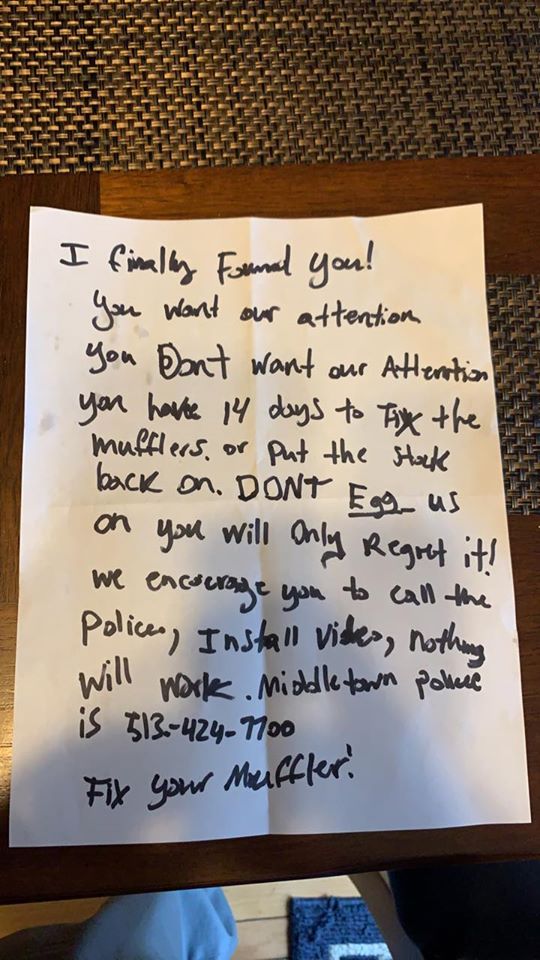 I finally Found you!
you want our attention
you Dont want our Attention
you have 14 days to Fix the
mufflers. or Put the stock
back on. DONT Egg us
on you will Only Regret it!
we encourage you to call the
Police, Install video, nothing
will work. Middletown police
is 513-424-7700
Fix your Muffler!